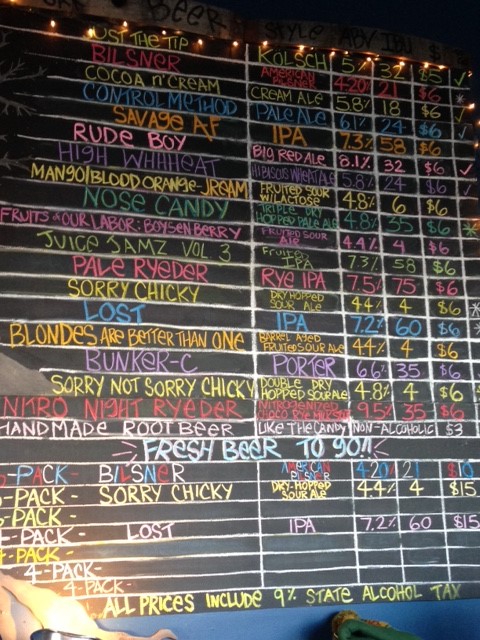 BEER STYLE ABV IBU $
JUST THE TIP KOLSCH 5% 32 $5
BILSNER AMERICAN PILSNER 4.20% 21 $6
COCOA n' CREAM CREAM ALE 5.8% 18 $6
CONTROL METHOD PALE ALE 6.1% 24 $6
SAVAGE AF IPA 7.3% 58 $6
RUDE BOY BIG RED ALE 8.1% 32 $6
HIGH WHHHEAT HIBISCUS WHEAT ALE 5.8% 24 $6
MANGO/BLOOD ORANGE-JREAM FRUITED SOUR W/LACTOSE 4.8% 6 $6
NOSE CANDY TRIPLE DRY HOPPED PALE ALE 4.8% 35 $6
FRUITS OF OUR LABOR: BOYSENBERRY FRUITED SOUR ALE 4.4% 4 $6
JUICE JAMZ VOL. 3 FRUITED IPA 7.3% 58 $6
PALE RYEDER RYE IPA 7.5% 75 $6
SORRY CHICKY DRY HOPPED SOUR ALE 4.4% 4 $6
LOST IPA 7.2% 60 $6
BLONDES ARE BETTER THAN ONE BARREL AGED FRUITED SOUR ALE 4.4% 4 $6
BUNKER-C PORTER 6.6% 35 $6
SORRY NOT SORRY CHICKY DOUBLE DRY HOPPED SOUR ALE 4.8% 4 $6
NITRO NIGHT RYEDER NITROGENATED 9.5% 35 $6
HANDMADE ROOTBEER LIKE THE CANDY NON-ALCOHOLIC $3
FRESH BEER TO GO!!
-PACK- BILSNER AMERICAN PILSNER 4.20% 21 $10
-PACK- SORRY CHICKY DRY-HOPPED SOUR ALE 4.4% 4 $15
-PACK-
-PACK- LOST IPA 7.2% 60 $15
-PACK-
4-PACK-
4-PACK-
ALL PRICES INCLUDE 9% STATE ALCOHOL TAX